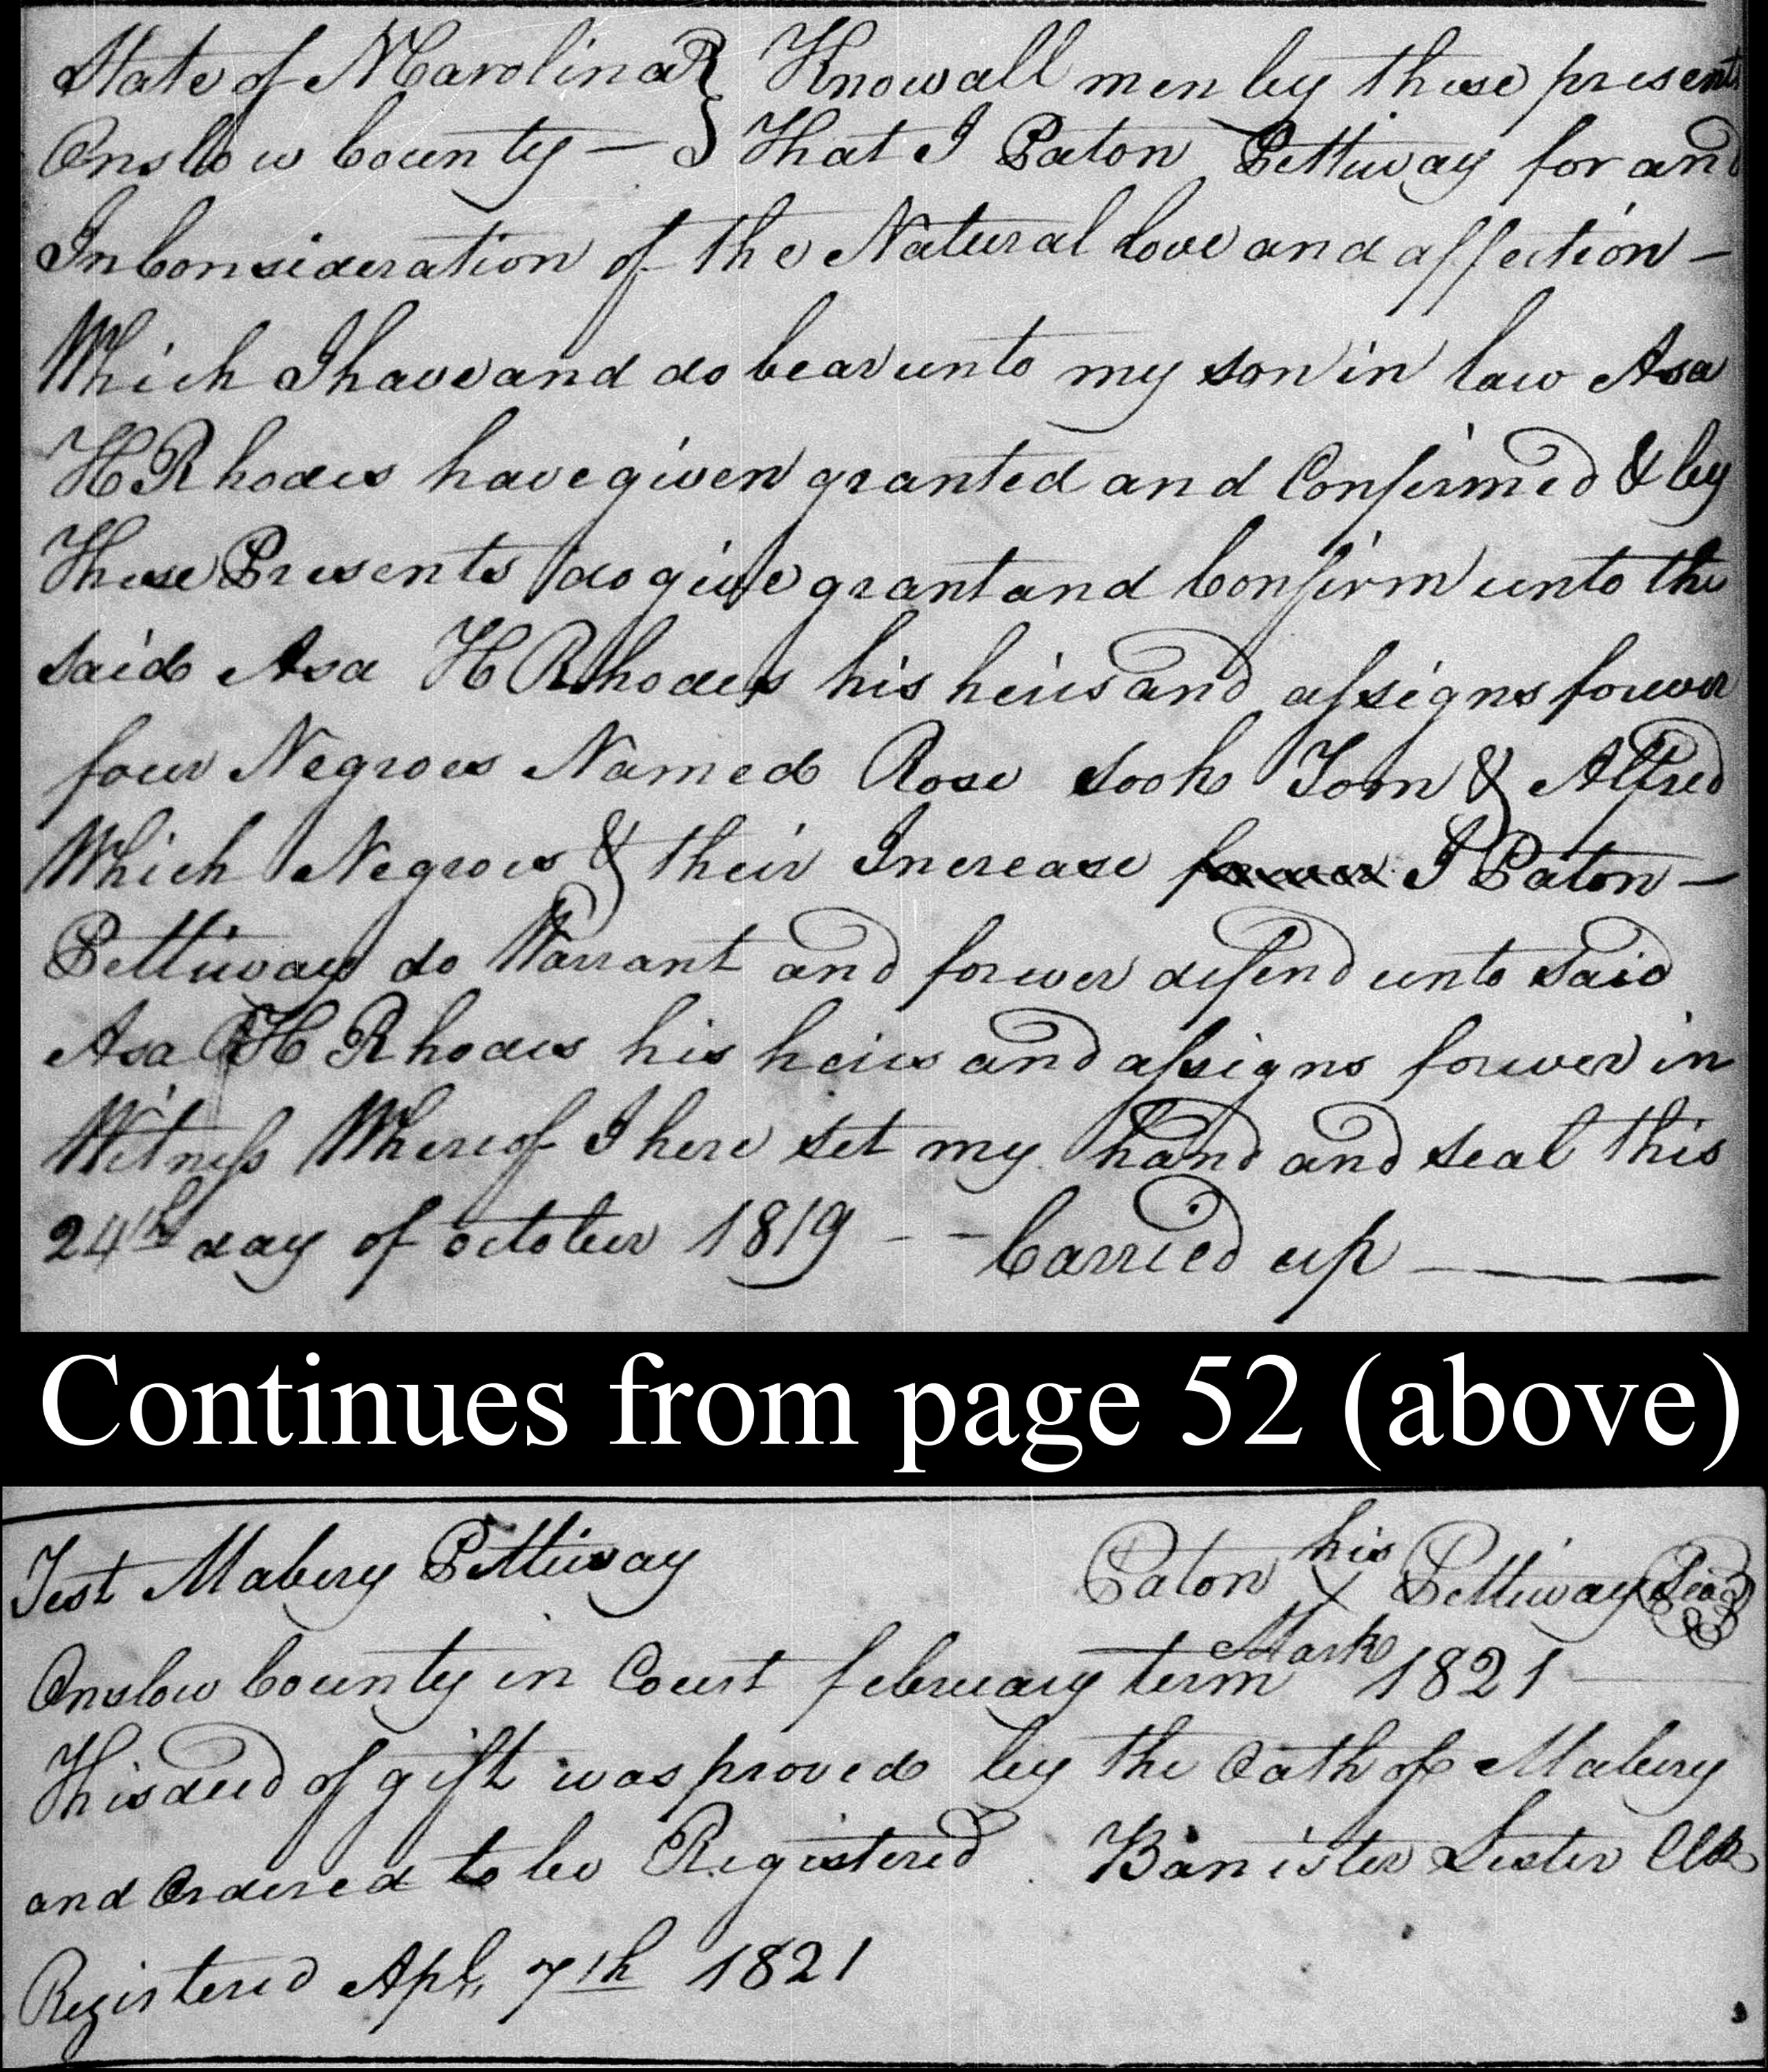 State of N Carolina } Know all men by these presents
Onslow County — } That I Paton Pettiway for and
In Consideration of the Natural love and affection —
Which I have and do bear unto my son in law Asa
H Rhodes have given granted and Confirmed & by
These Presents do give grant and Confirm unto the
said Asa H Rhodes his heirs and assigns forever
four Negroes Named Rose Sook Tom & Alfred
Which Negroes & their Increase forever I Paton —
Pettiway do Warrant and forever defend unto said
Asa H Rhodes his heirs and assigns forever in
Witness Whereof I here set my hand and seal this
24th day of october 1819 - - Carried up ———
Continues from page 52 (above)
Test Mabery Pettiway Paton his X Mark Pettiway Seal
Onslow County in Court february term 1821
This deed of gift was proved by the Oath of Mabery
and Ordered to be Registered Banister Lester Clk
Registered Apl, 7th 1821